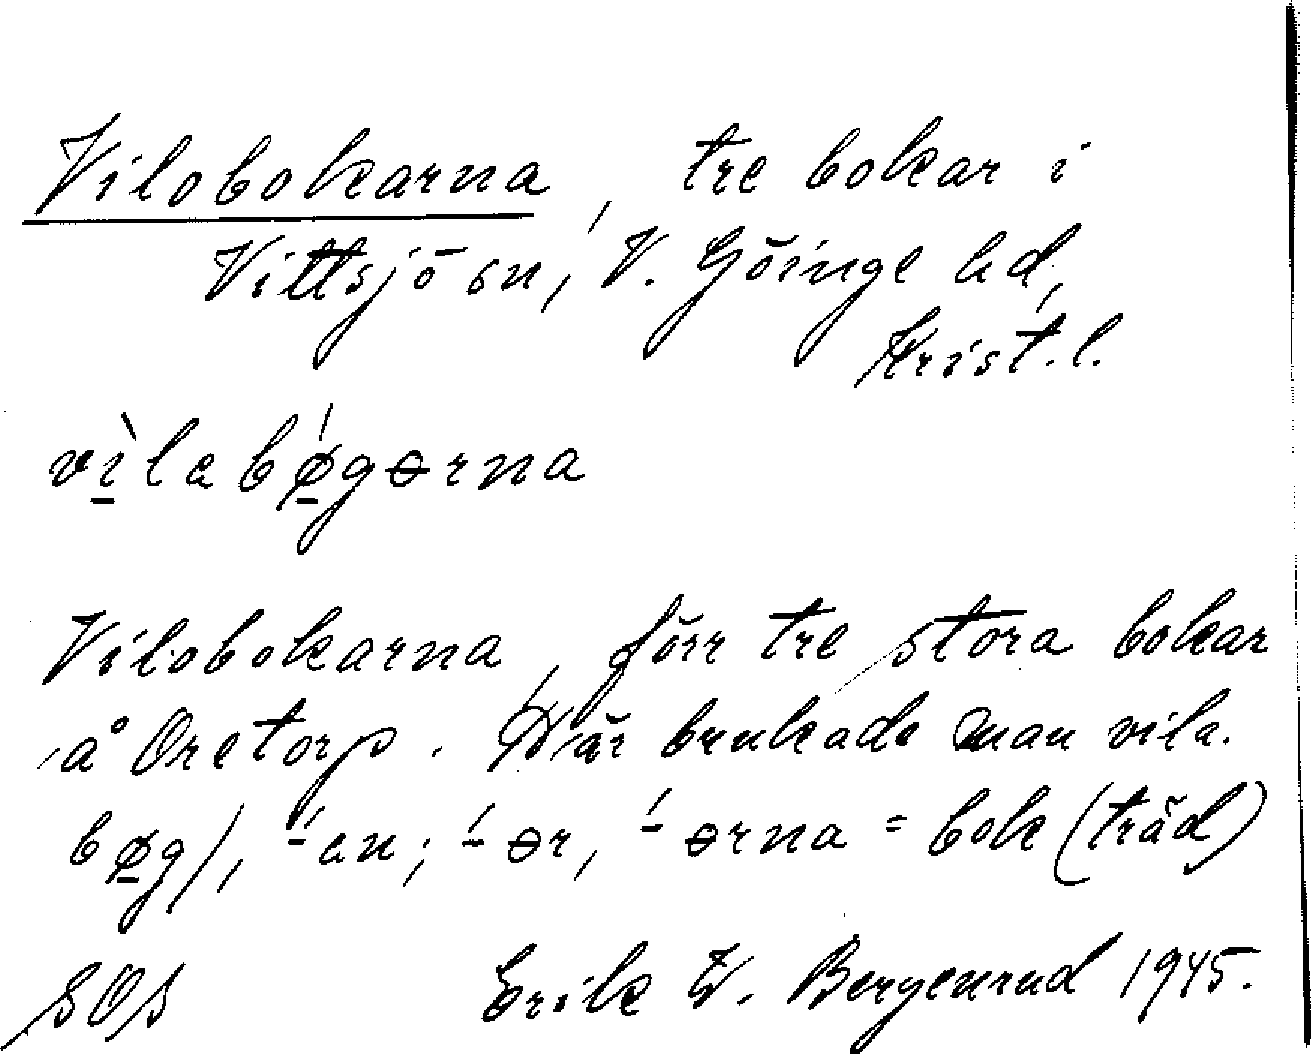 Vilobokarna, tre bokar i
Vittsjö sn, V. Göinge hd,
Krist. l.
vì̱la bǿ̱gɵrna
Vilobokarna, förr tre stora bokar
å Oretorp. Där brukade man vila.
bø̱g/, -́an; -́ɵr, -́ɵrna = bok (träd)
SOS Erik W. Bergenrud 1945.